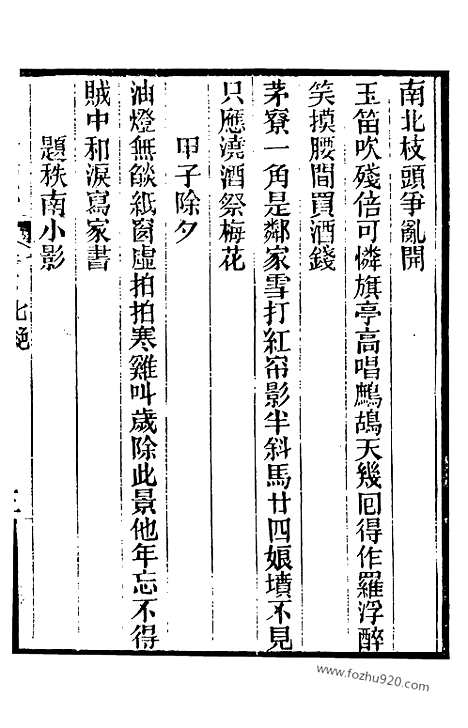 南北枝頭爭亂開
玉笛吹殘倍可憐旗亭高唱鷓鴣天幾囘得作羅浮醉
笑摸腰間買酒錢
茅寮一角是鄰家雪打紅帘影半斜馬廿四娘墳不見
只應澆酒祭梅花
甲子除夕
油燈無燄紙窗虛拍拍寒雞叫歲除此景他年忘不得
賊中和淚寫家書
題秩南小影
七絶
三
www.fozhu920.com